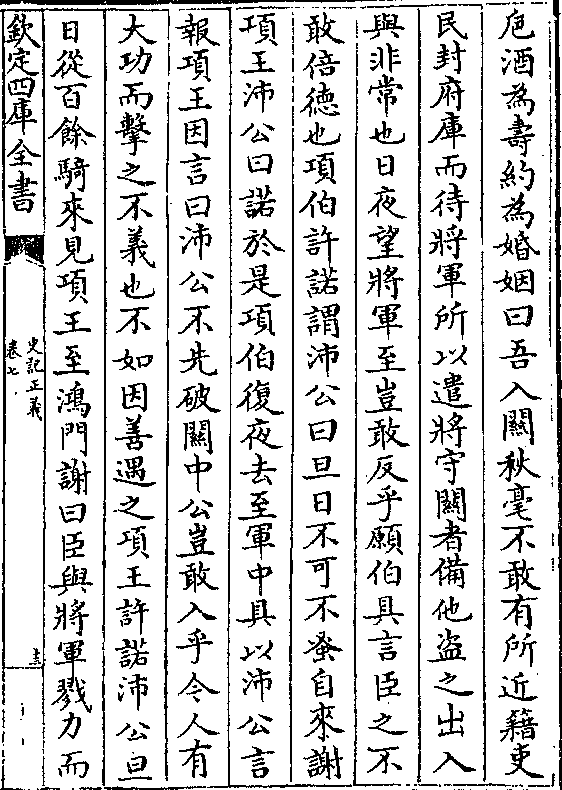 巵酒為壽約為婚姻曰吾入關秋毫不敢有所近籍吏
民封府庫而待將軍所以遣將守關者備他盜之出入
與非常也日夜望將軍至豈敢反乎願伯具言臣之不
敢倍德也項伯許諾謂沛公曰旦日不可不蚤自來謝
項王沛公曰諾於是項伯復夜去至軍中具以沛公言
報項王因言曰沛公不先破關中公豈敢入乎今人有
大功而擊之不義也不如因善遇之項王許諾沛公旦
日從百餘騎來見項王至鴻門謝曰臣與將軍戮力而
欽定四庫全書
史記正義
卷七